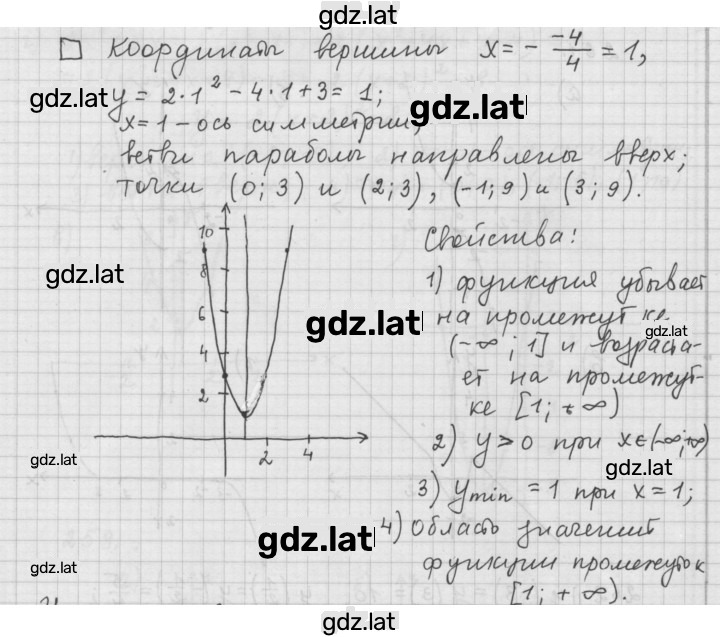 gdz.lat
□ Координаты вершины x = - -4/4 = 1,
gdz.lat
y = 2·1² - 4·1 + 3 = 1;
gdz.lat
x = 1 - ось симметрии,
ветви параболы направлены вверх;
точки (0; 3) и (2; 3), (-1; 9) и (3; 9).
10
8
6
4
2
2 4
gdz.lat
Свойства:
1) функция убывает
на промежутке
gdz.lat
gdz.lat
(-∞; 1] и возраста-
ет на промежут-
ке [1; +∞)
2) y > 0 при x∈(-∞;+∞)
gdz.lat
gdz.lat
3) y min = 1 при x = 1;
4) Область значений
gdz.lat
функции промежуток
gdz.lat
[1; +∞).
gdz.lat